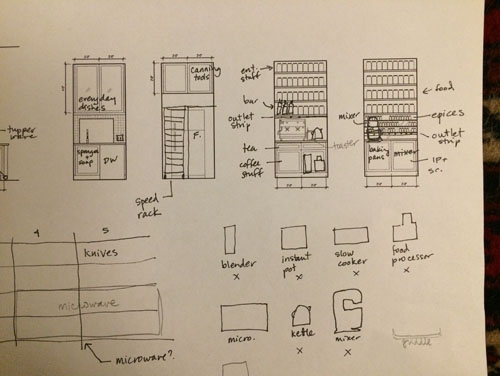 canning
tools
ent.
stuff
everyday
dishes
bar
outlet
strip
food
mixer
spices
outlet
strip
tupper
ware
sponges
soap
DW
F.
tea
coffee
stuff
toaster
baking
pans
mixer
IP +
sc.
speed
rack
4
5
knives
microwave
microwave?
blender
x
instant
pot
x
slow
cooker
x
food
processor
x
micro.
kettle
x
mixer
x
griddle